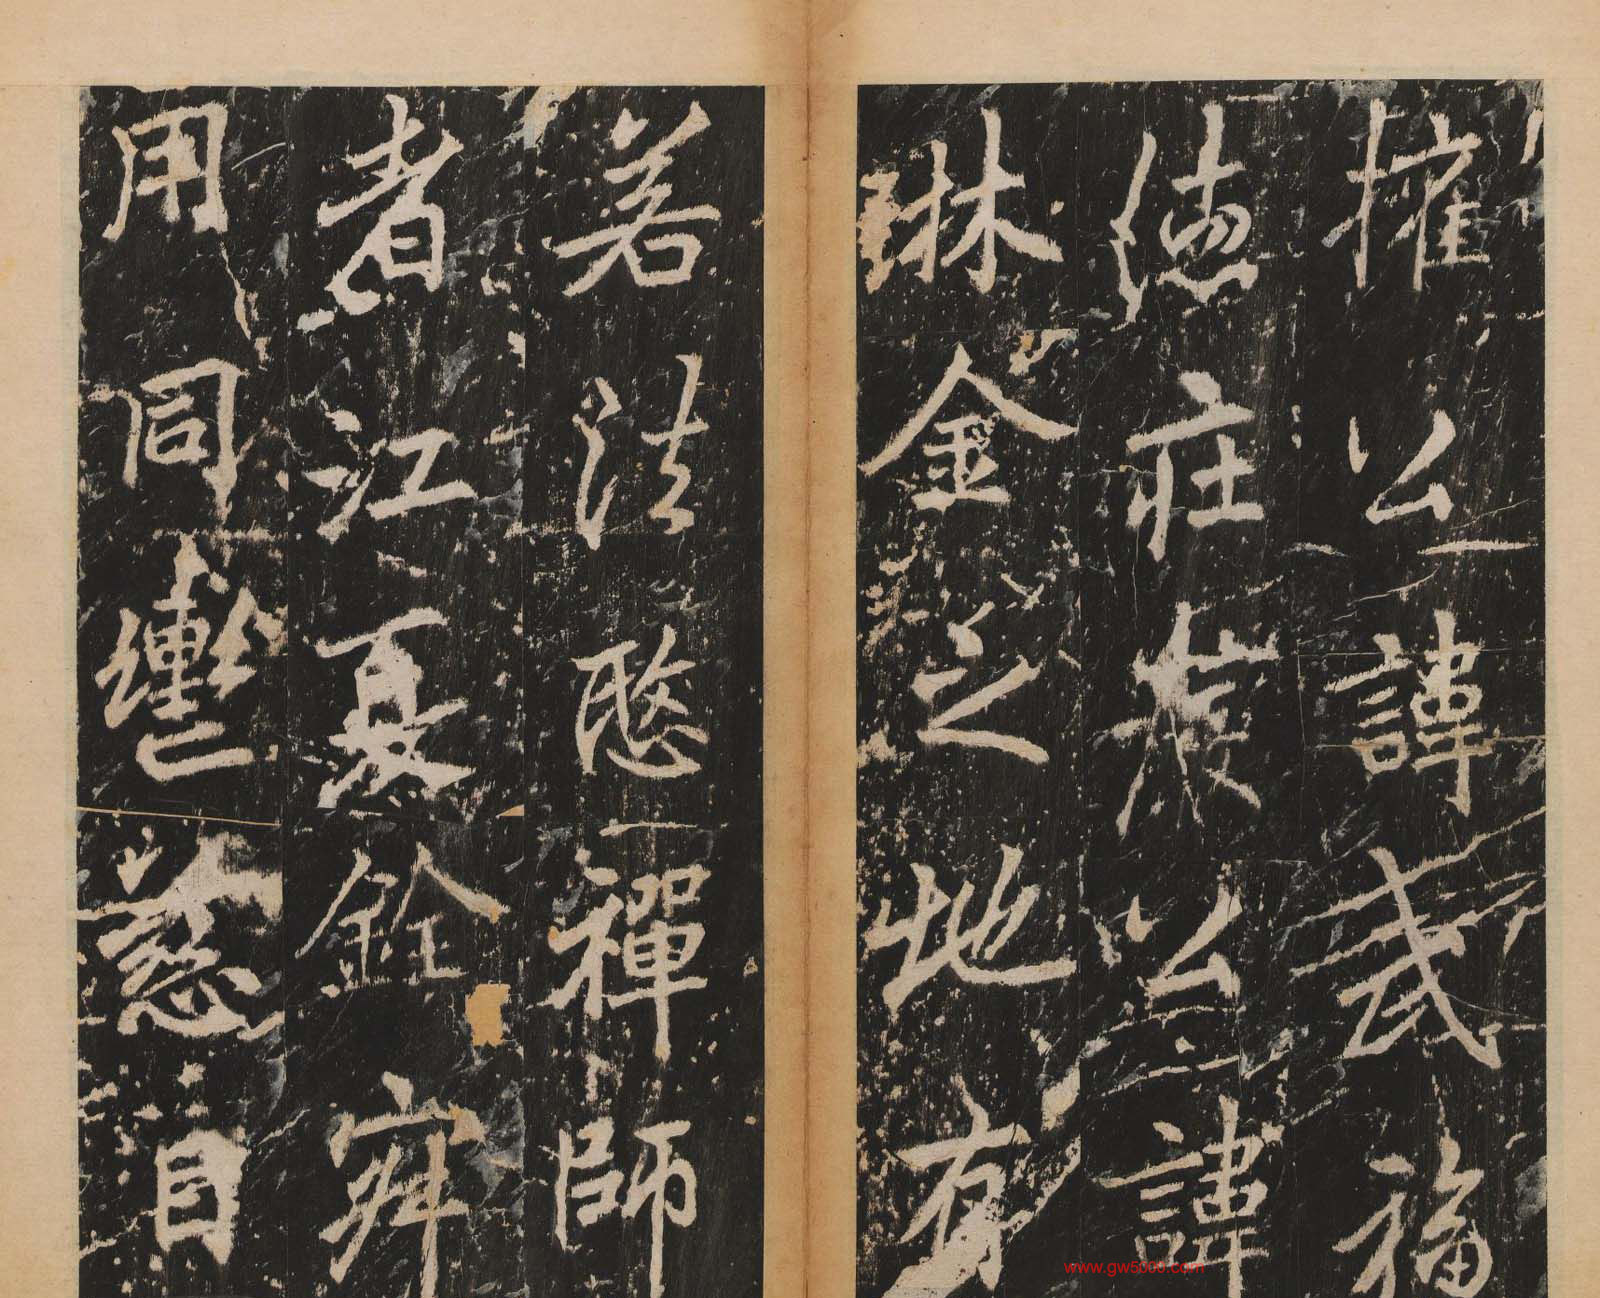 權公諱武福
德莊公諱
琳金之地有
若法愍禪師
者江夏銓寂
用同轡慈目
www.gw5000.com